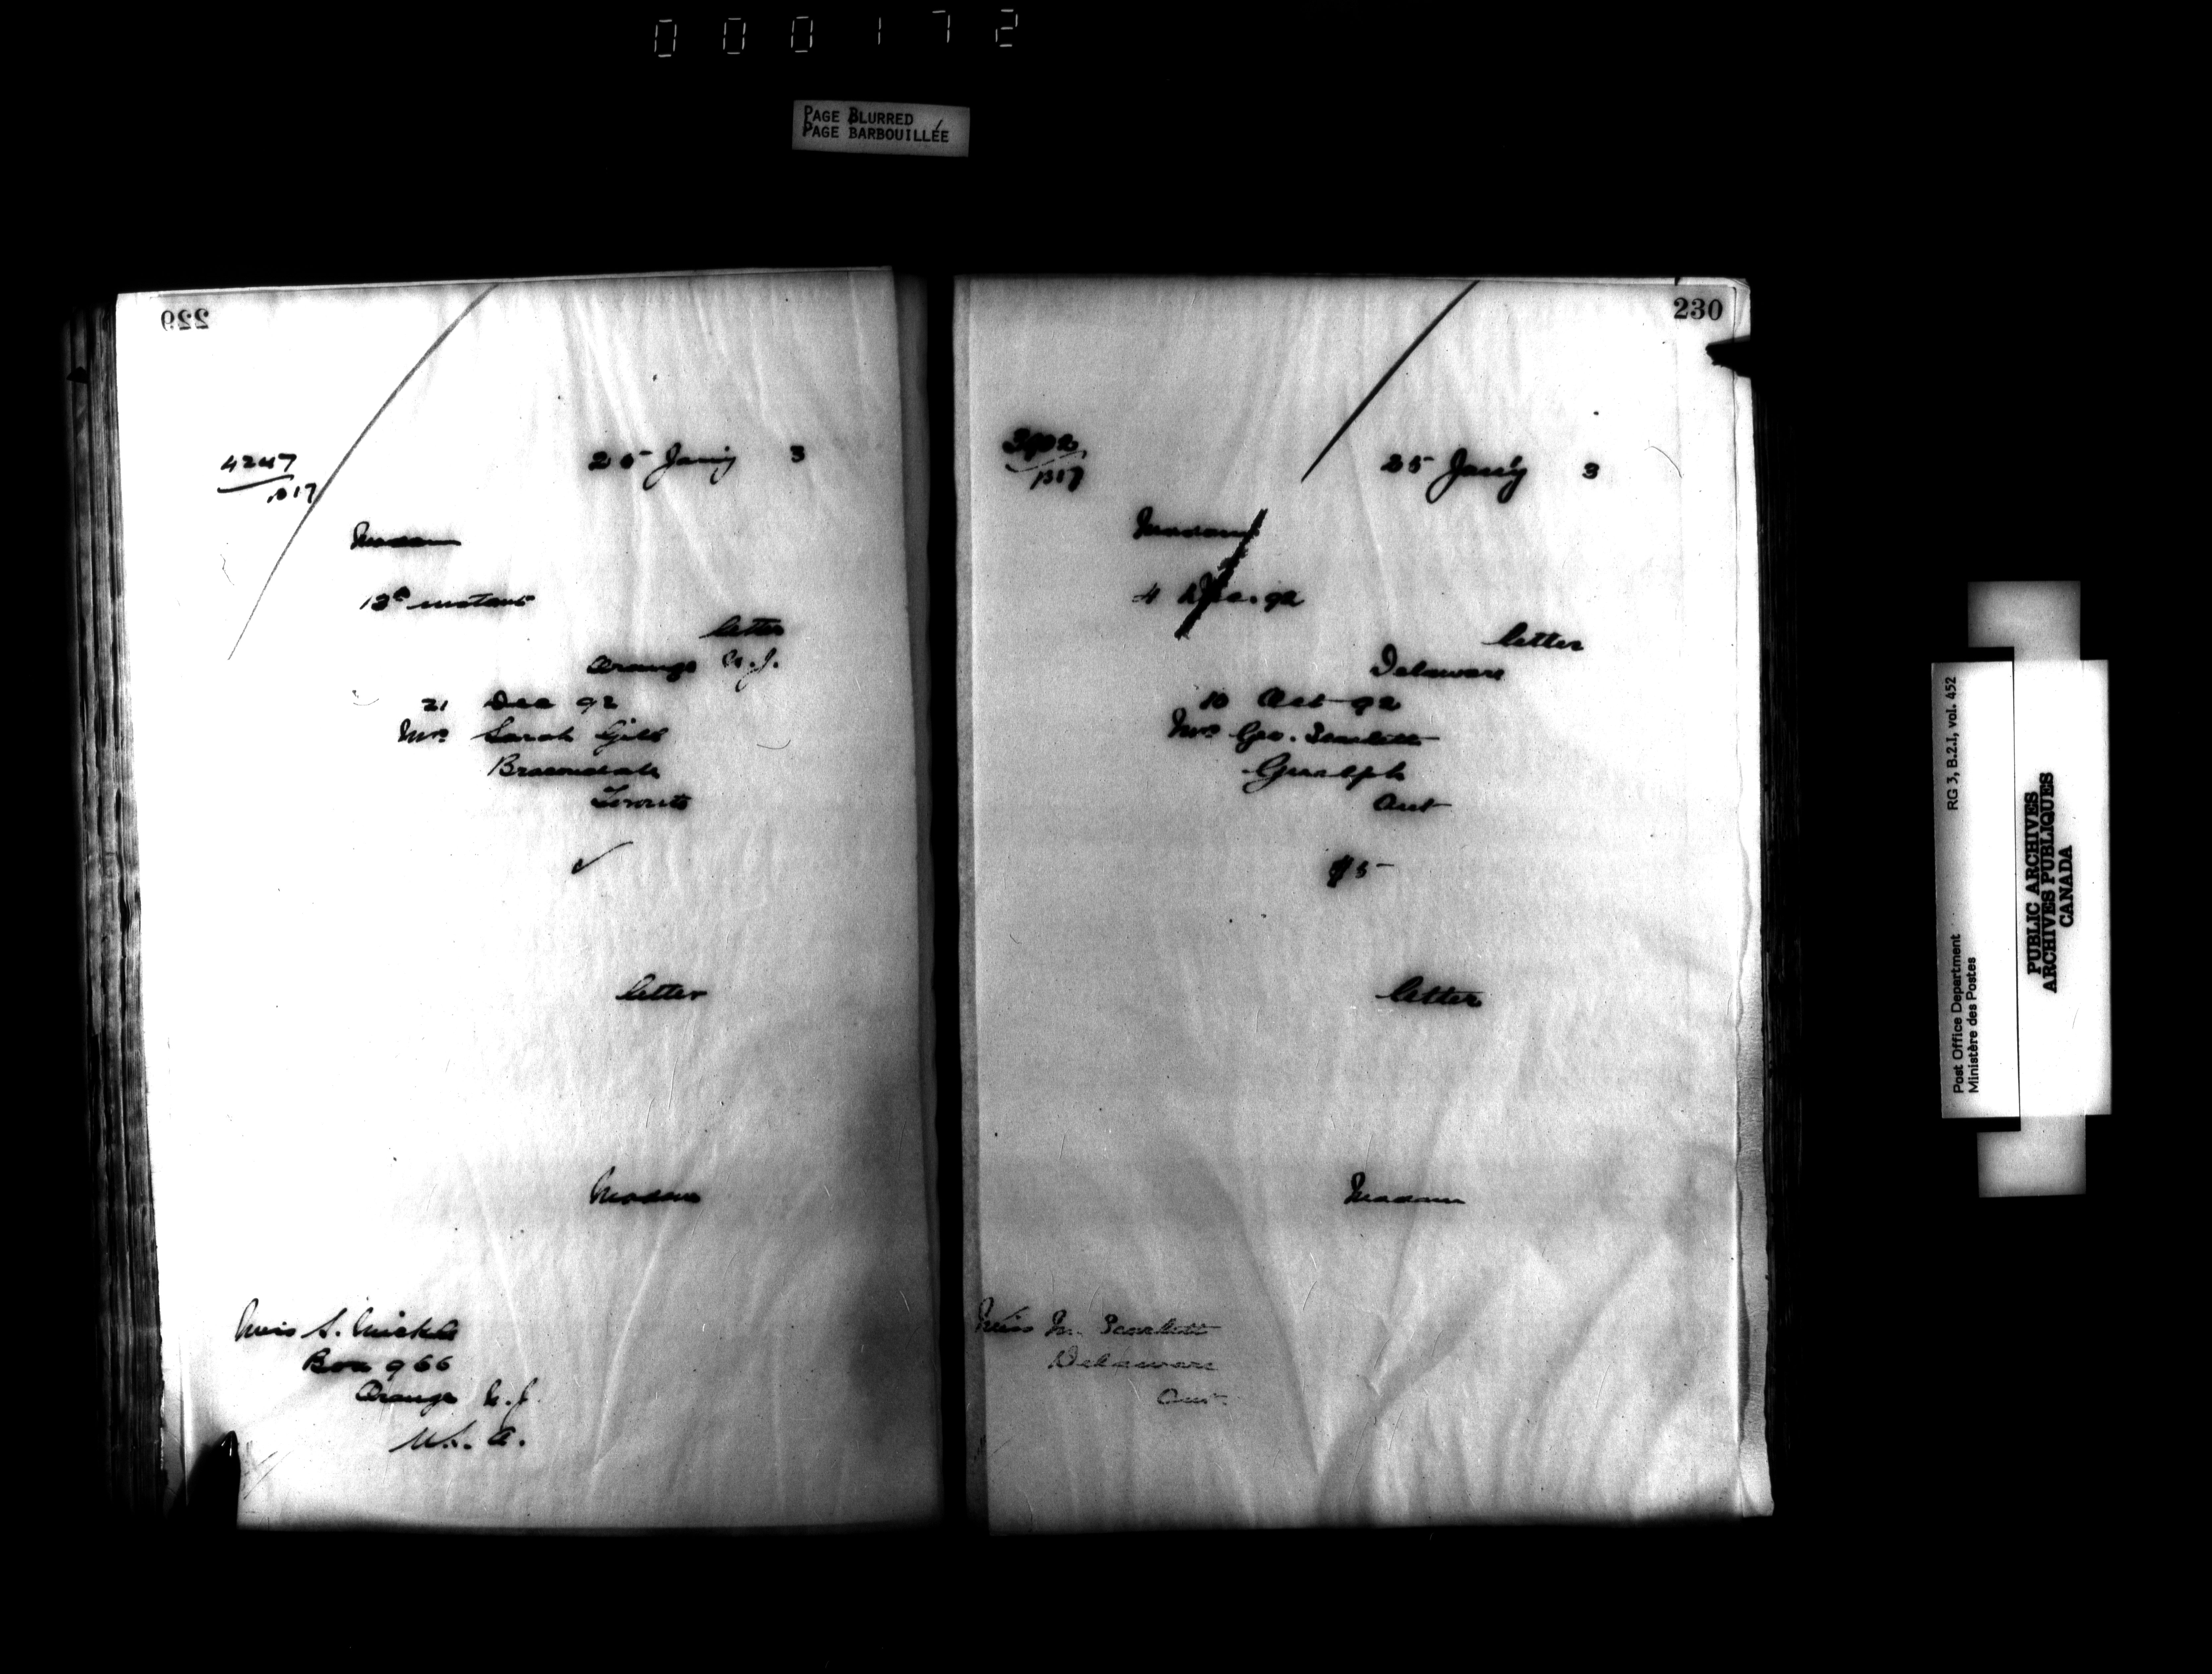 000172
PAGE BLURRED
PAGE BARBOUILLÉE
229
4247
25 Jany 3
Madam
13th instant
letter
Orange N.J.
21 Dec 92
Mrs Sarah Gibb
Bracondale
Toronto
✓
letter
Madam
Miss S.
Box 966
Orange N.J.
U.S.A.
230
1317
25 Jany 3
Madam
4 92
letter
Delaware
10 Oct 92
Mrs Geo. Scarlett
Guelph
Ont
$5-
letter
Madam
Miss M. Scarlett
Delaware
Ont.
Post Office Department
Ministère des Postes
RG 3, B.2.I, vol. 452
PUBLIC ARCHIVES
ARCHIVES PUBLIQUES
CANADA